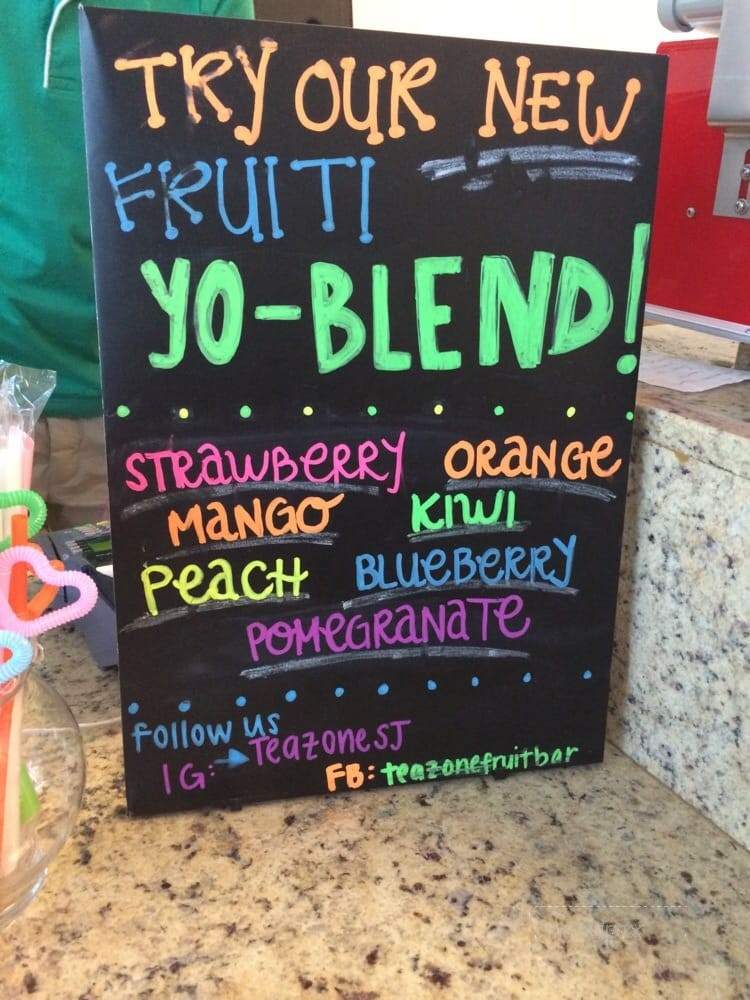 TRY OUR NEW
FRUITI
YO-BLEND!
STRAWBERRY ORANGE
MANGO KIWI
PEACH BLUEBERRY
POMEGRANATE
follow us
IG: → TeazoneSJ
FB: teazonefruitbar